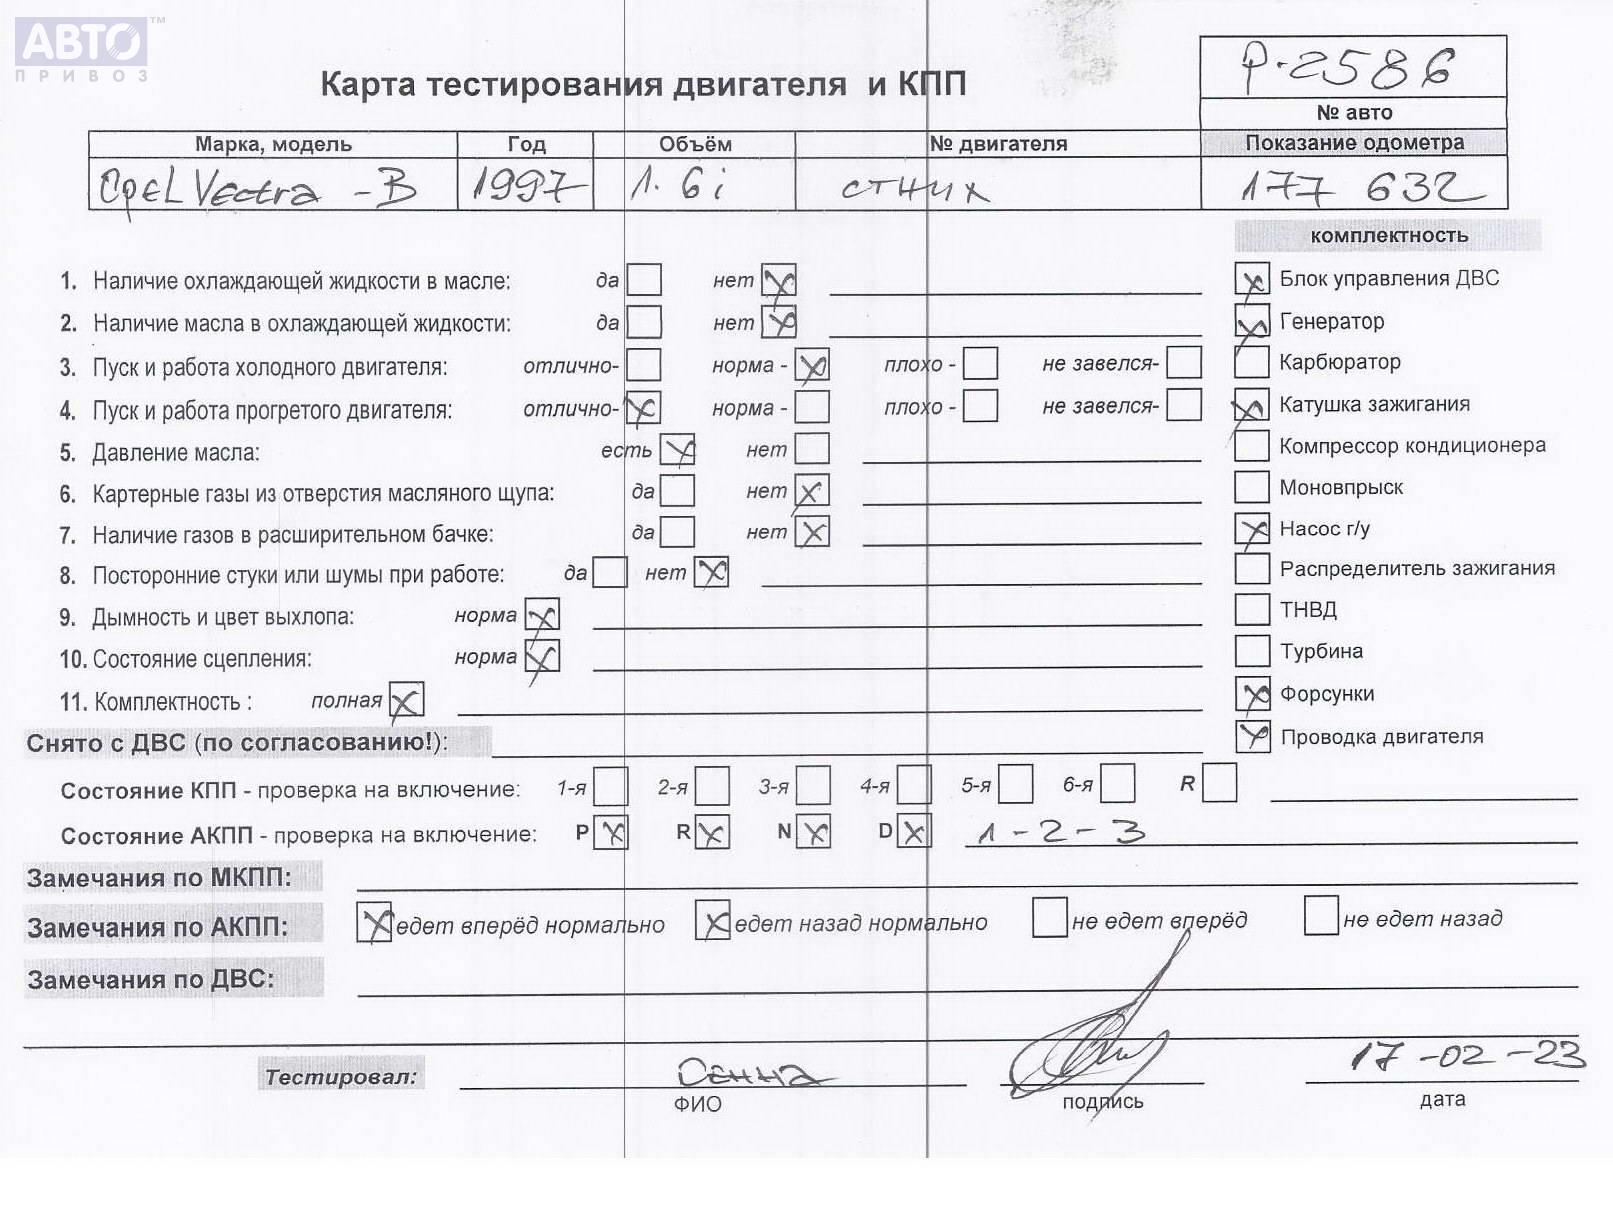 АВТО™
ПРИВОЗ
Карта тестирования двигателя и КПП
P-2586
№ авто
Марка, модель Год Объём № двигателя Показание одометра
Opel Vectra - B 1997 1.6i стних 177 632
комплектность
1. Наличие охлаждающей жидкости в масле: да нет
Блок управления ДВС
2. Наличие масла в охлаждающей жидкости: да нет
Генератор
3. Пуск и работа холодного двигателя: отлично- норма - плохо - не завелся-
Карбюратор
4. Пуск и работа прогретого двигателя: отлично- норма - плохо - не завелся-
Катушка зажигания
5. Давление масла: есть нет
Компрессор кондиционера
6. Картерные газы из отверстия масляного щупа: да нет
Моновпрыск
7. Наличие газов в расширительном бачке: да нет
Насос г/у
8. Посторонние стуки или шумы при работе: да нет
Распределитель зажигания
9. Дымность и цвет выхлопа: норма
ТНВД
10. Состояние сцепления: норма
Турбина
11. Комплектность : полная
Форсунки
Снято с ДВС (по согласованию!):
Проводка двигателя
Состояние КПП - проверка на включение: 1-я 2-я 3-я 4-я 5-я 6-я R
Состояние АКПП - проверка на включение: P R N D 1 - 2 - 3
Замечания по МКПП:
Замечания по АКПП: едет вперёд нормально едет назад нормально не едет вперёд не едет назад
Замечания по ДВС:
Тестировал: Сенна 17-02-23
ФИО подпись дата